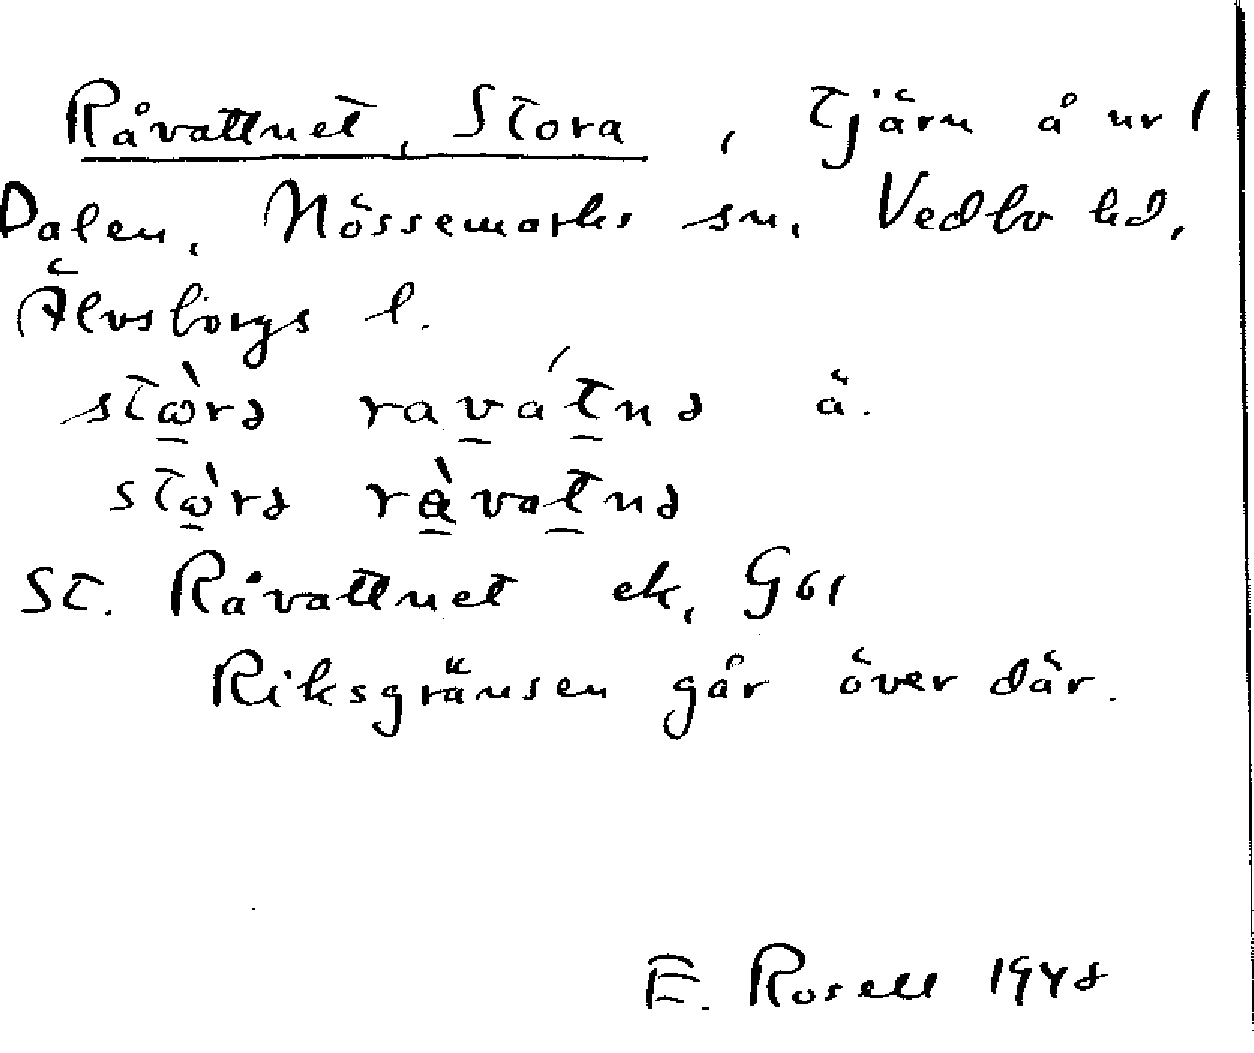 Råvattnet, Stora, Tjärn å nr 1
Dalen, Nössemarks sn, Vedbo hd,
Älvsborgs l.
stⱥ̀rə ravátnə ä.
stⱥ̀rə ràvatnə
St. Råvattnet ek, G61
Riksgränsen går över där.
E. Rosell 1948